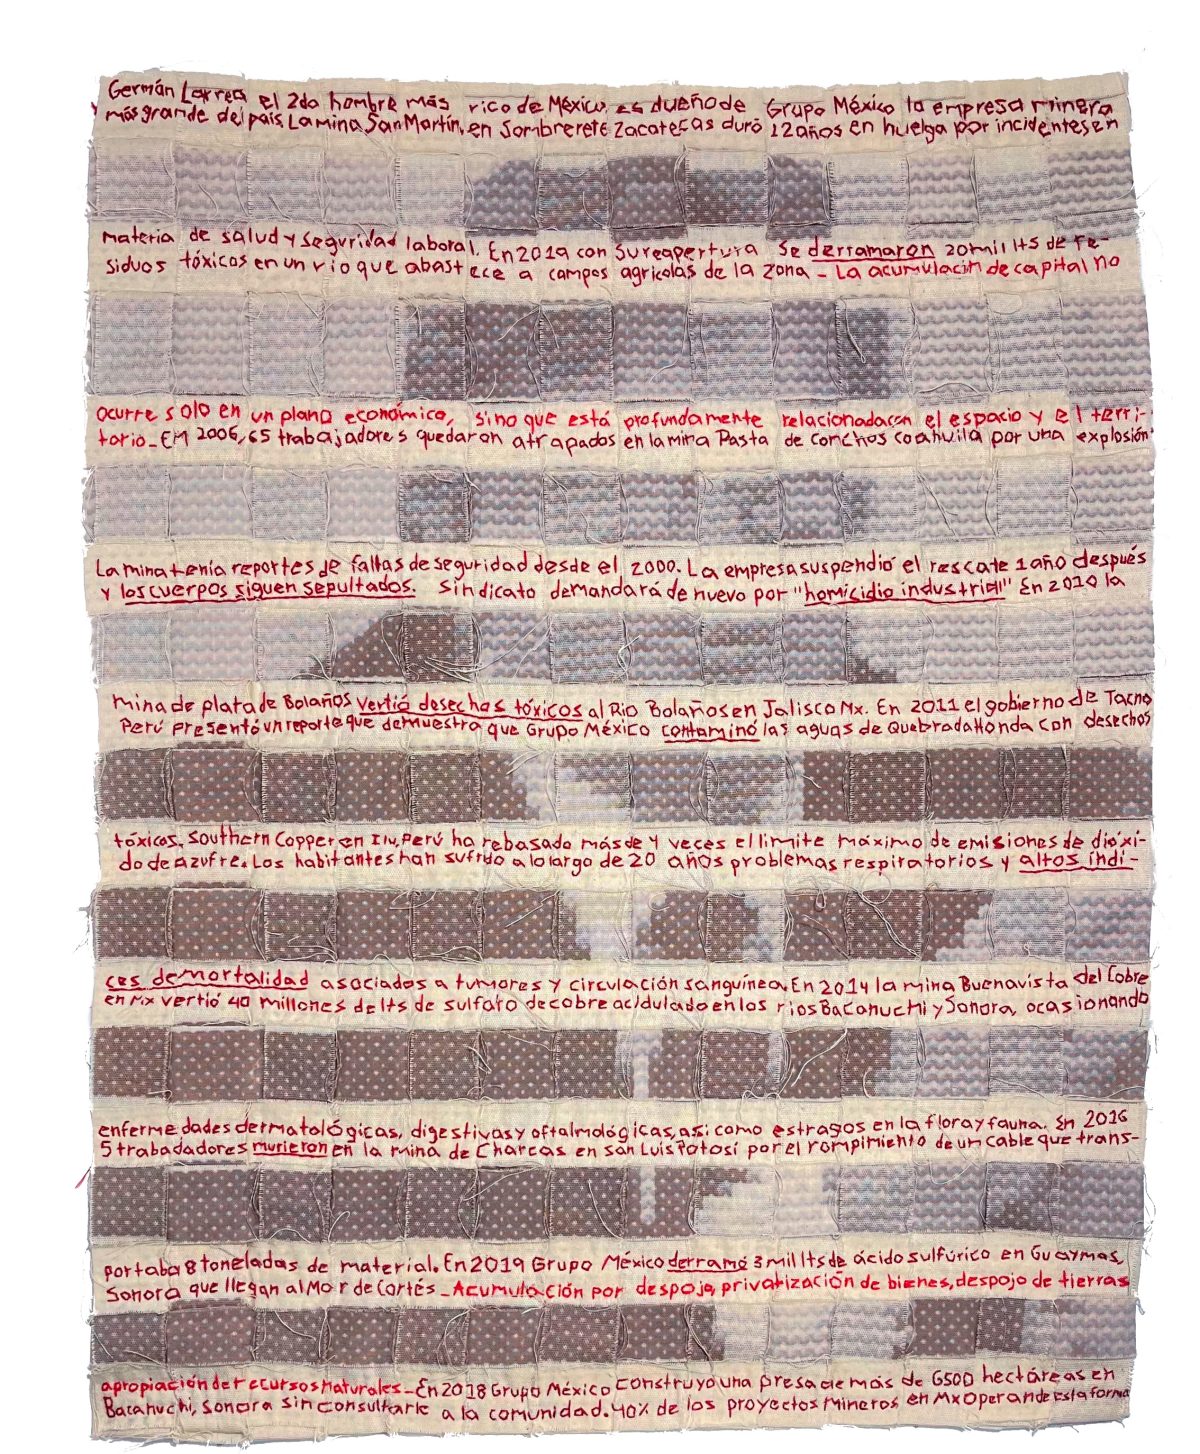 Germán Larrea el 2do hombre más rico de México, es dueño de Grupo México la empresa minera
más grande del país. La mina San Martín, en Sombrerete Zacatecas duró 12 años en huelga por incidentes en
materia de salud y seguridad laboral. En 2019 con su reapertura se derramaron 20 mil lts de re-
siduos tóxicos en un rio que abastece a campos agricolas de la zona - La acumulación de capital no
ocurre solo en un plano económico, sino que está profundamente relacionada con el espacio y el terri-
torio - En 2006, 65 trabajadores quedaron atrapados en la mina Pasta de Conchos Coahuila por una explosión
La mina tenía reportes de faltas de seguridad desde el 2000. La empresa suspendió el rescate 1 año después
y los cuerpos siguen sepultados. Sindicato demandará de nuevo por "homicidio industrial" En 2010 la
mina de plata de Bolaños vertió desechos tóxicos al Rio Bolaños en Jalisco Mx. En 2011 el gobierno de Tacna
Perú presentó un reporte que demuestra que Grupo México contaminó las aguas de Quebrada Honda con desechos
tóxicos. Southern Copper en Ilo, Perú ha rebasado más de 4 veces el limite máximo de emisiones de dióxi-
do de azufre. Los habitantes han sufrido a lo largo de 20 años problemas respiratorios y altos indi-
ces de mortalidad asociados a tumores y circulación sanguínea. En 2014 la mina Buenavista del Cobre
en Mx vertió 40 millones de lts de sulfato de cobre acidulado en los rios Bacanuchi y Sonora, ocasionando
enfermedades dermatológicas, digestivas y oftalmológicas, asi como estragos en la flora y fauna. En 2016
5 trabadadores murieron en la mina de Charcas en San Luis Potosí por el rompimiento de un cable que trans-
portaba 8 toneladas de material. En 2019 Grupo México derramó 3 mil lts de ácido sulfúrico en Guaymas,
Sonora que llegan al Mar de Cortés - Acumulación por despojo, privatización de bienes, despojo de tierras
apropiación de recursos naturales - En 2018 Grupo México construyo una presa de más de 6500 hectáreas en
Bacanuchi, Sonora sin consultarle a la comunidad. 40% de los proyectos mineros en Mx operan de esta forma